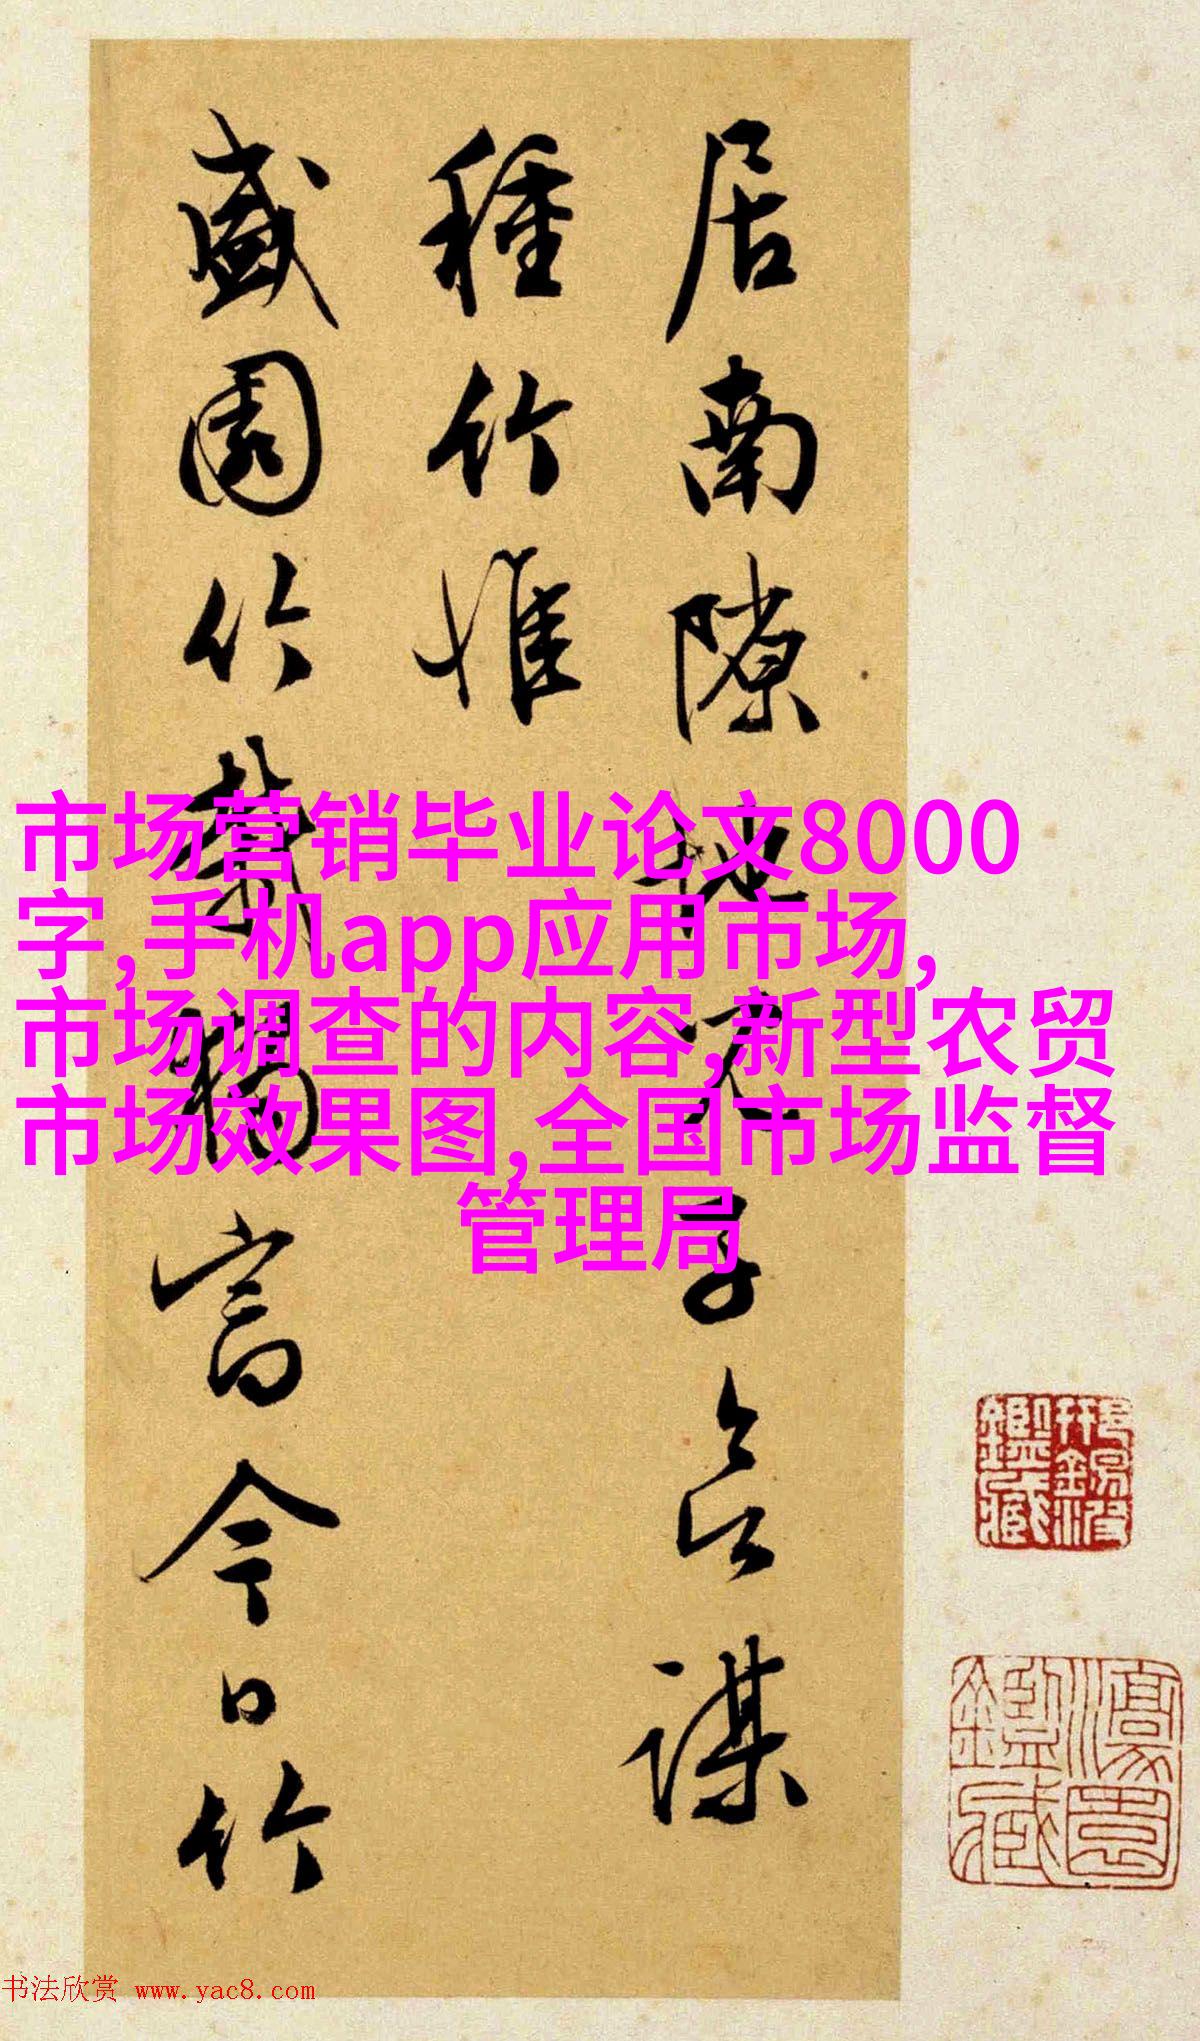 居南隙地子謀
種竹惟
盛園竹獨今日竹
市场营销毕业论文8000
字,手机app应用市场,
市场调查的内容,新型农贸
市场效果图,全国市场监督
管理局
鑑藏
鑑藏
书法欣赏 www.yac8.com